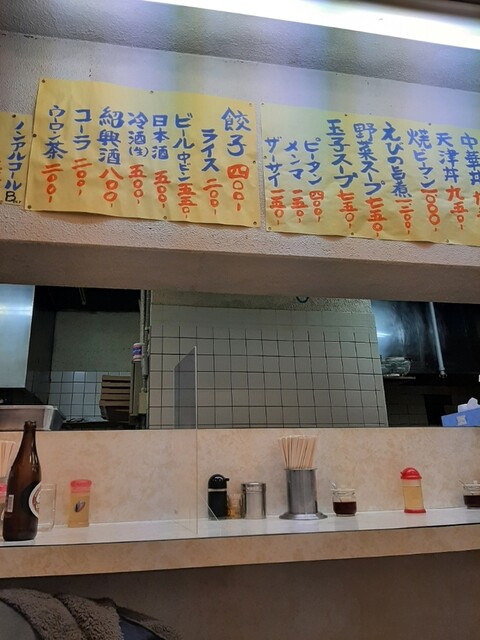 中華丼
天津丼 九五〇-
焼ビーフン 一〇〇〇-
えびの旨煮
野菜スープ 七五〇-
玉子スープ 七五〇-
ピータン 四〇〇-
メンマ 二五〇-
ザーサイ 二五〇-
餃子 四〇〇-
ライス 二〇〇-
ビール中ビン 五五〇-
日本酒 五〇〇-
冷酒(生) 五〇〇-
紹興酒 八〇〇-
コーラ 二〇〇-
ウーロン茶 二〇〇-
ノンアルコールB